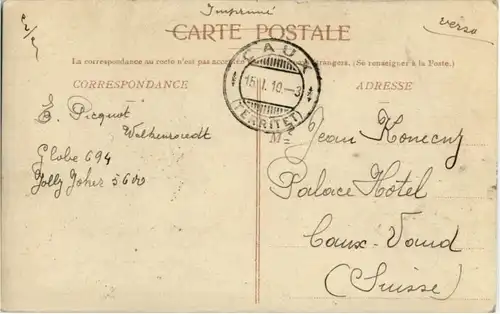 Imprimé
verso
CARTE POSTALE
La correspondance au recto n'est pas acceptée par étrangers. (Se renseigner à la Poste.)
CORRESPONDANCE
ADRESSE
CAUX
15. I. 10. - 3
(TERRITET)
E. Picquot
Walkenroedt
Globe 694
Jolly Joker 5600
Jean Konecny
Palace Hôtel
Caux-Vaud
(Suisse)